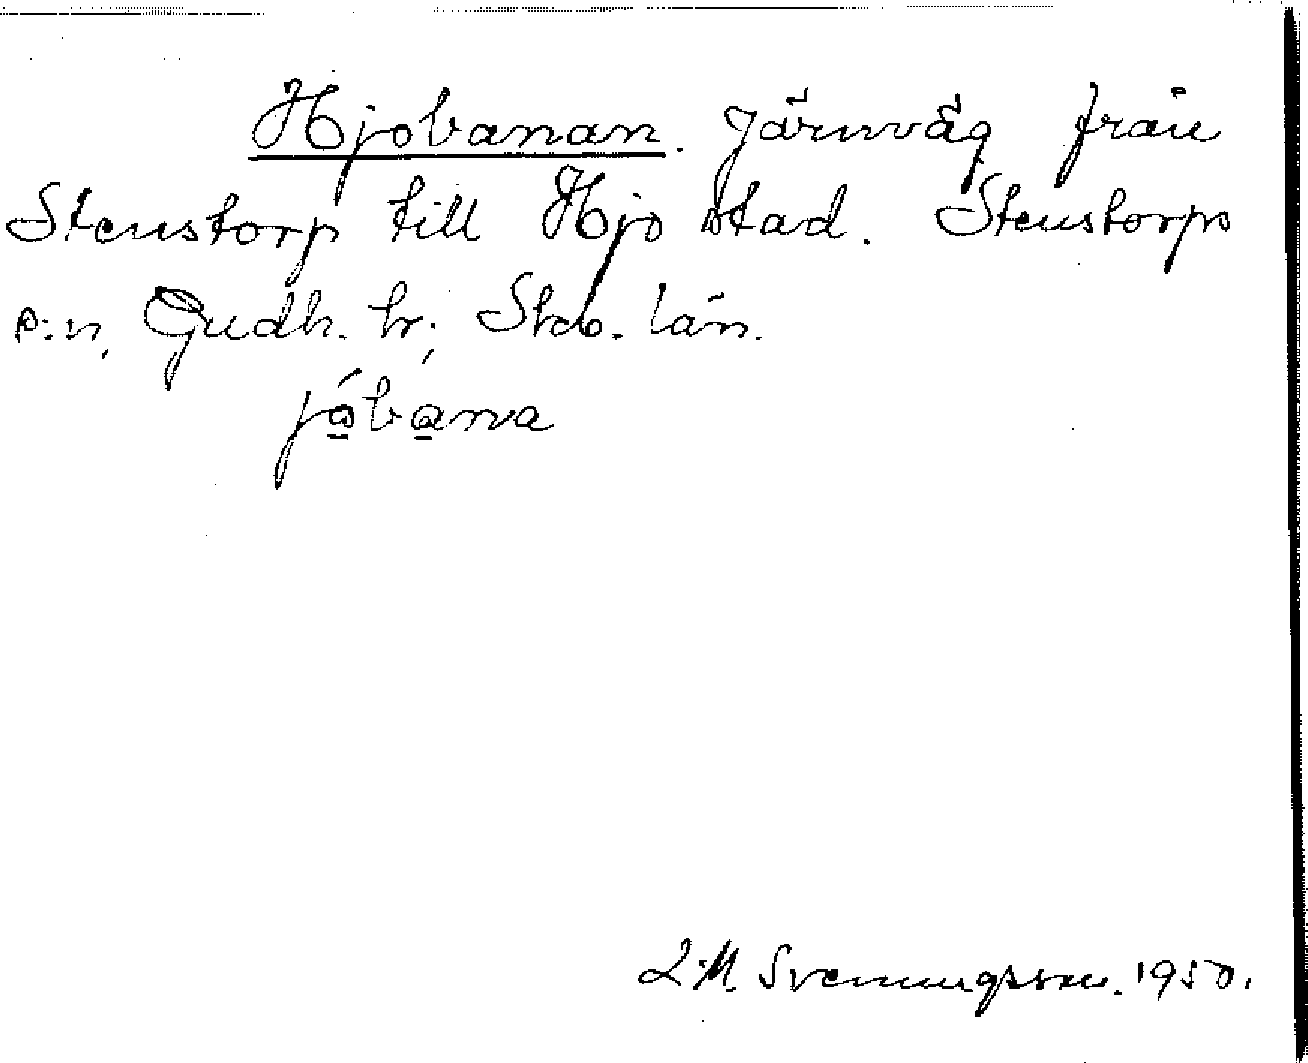 Hjobanan. Järnväg från
Stenstorp till Hjo stad. Stenstorps
s:n, Gudh. hr; Skb. län.
jó̲ba̲nna
L.M. Svenningsson. 1950.